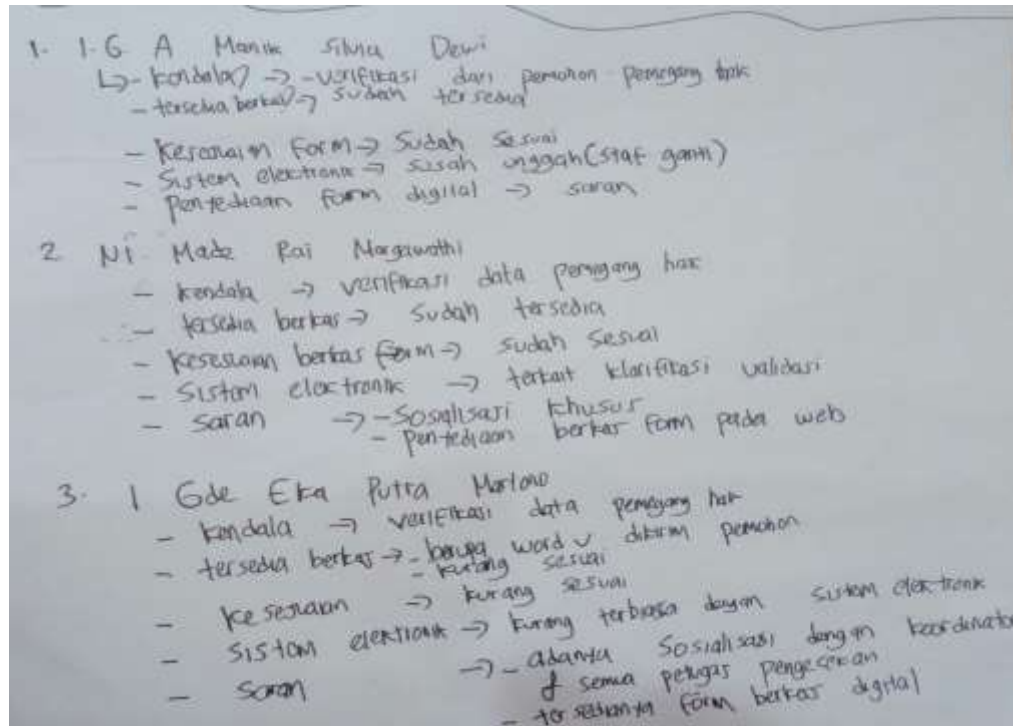 1. I.G A Manik Silvia Dewi
↳ - kendala → - verifikasi dari pemohon pemegang hak
- tersedia berkas → sudah tersedia
- Kesesuaian form → Sudah sesuai
- Sistem elektronik → susah unggah (staf ganti)
- Penyediaan form digital → saran
2 Ni Made Rai Margawathi
- kendala → verifikasi data pemegang hak
- tersedia berkas → sudah tersedia
- Kesesuaian berkas form → sudah sesuai
- Sistem elektronik → terkait klarifikasi validasi
- saran → - Sosialisasi khusus
- Penyediaan berkas form pada web
3. I Gde Eka Putra
- kendala → verifikasi data pemegang hak
- tersedia berkas → - berupa word dikirim pemohon
- kurang sesuai
- kesesuaian → kurang sesuai
- sistem elektronik → kurang terbiasa dengan sistem elektronik
- saran → - adanya Sosialisasi dengan koordinator
& semua petugas pengecekan
- tersedianya form berkas digital